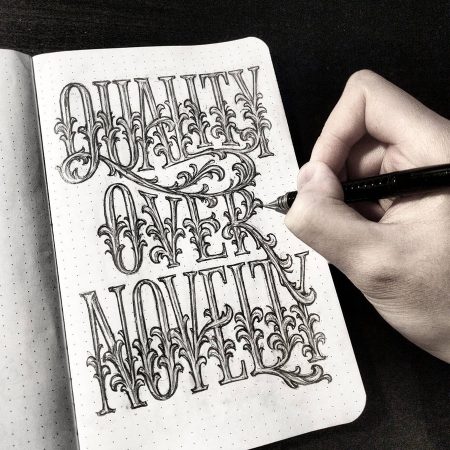 QUALITY
OVER
NOVELTY